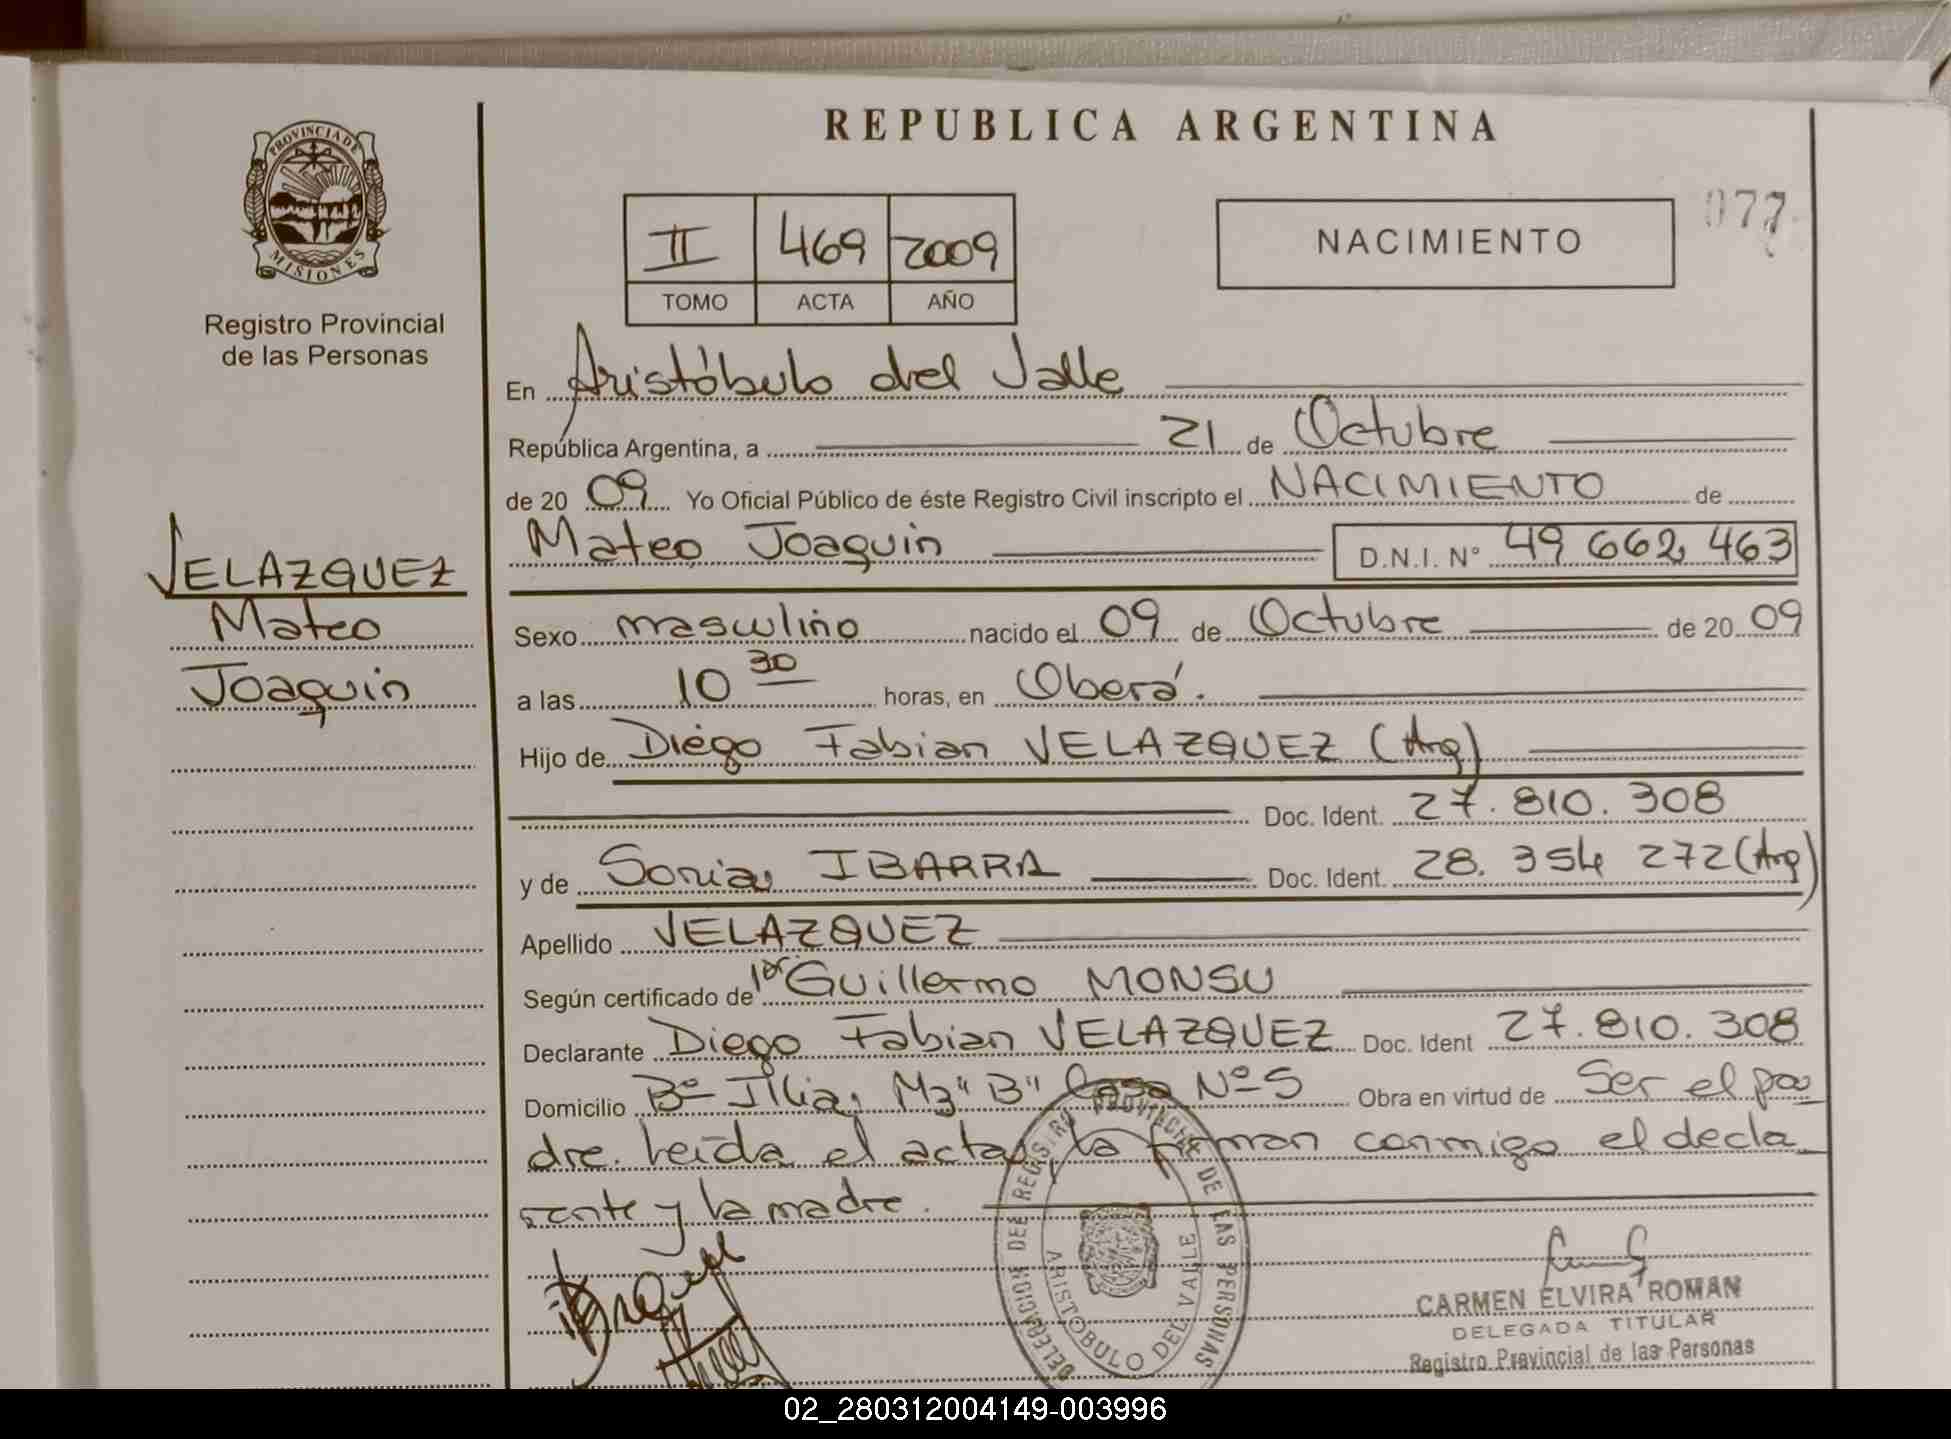 REPUBLICA ARGENTINA
PROVINCIA DE
MISIONES
Registro Provincial
de las Personas
II 469 2009
TOMO ACTA AÑO
NACIMIENTO
077
En Aristóbulo del Valle
República Argentina, a 21 de Octubre
de 20 09 Yo Oficial Público de éste Registro Civil inscripto el NACIMIENTO de
Mateo Joaquin D.N.I. N° 49 662 463
VELAZQUEZ
Mateo
Joaquin
Sexo masculino nacido el 09 de Octubre de 20 09
a las 10 30 horas, en Oberá.
Hijo de Diego Fabian VELAZQUEZ (Arg)
Doc. Ident. 27.810.308
y de Sonia IBARRA Doc. Ident. 28.354 272 (Arg)
Apellido VELAZQUEZ
Según certificado de Guillermo MONSU
Declarante Diego Fabian VELAZQUEZ Doc. Ident 27.810.308
Domicilio Bº Illia, Mz "B" Casa Nº 5 Obra en virtud de Ser el pa
dre. leída el acta, la firman conmigo el decla
rante y la madre.
DELEGACION DEL REGISTRO PROVINCIAL DE LAS PERSONAS
ARISTOBULO DEL VALLE
CARMEN ELVIRA ROMAN
DELEGADA TITULAR
Registro Provincial de las Personas
02_280312004149-003996